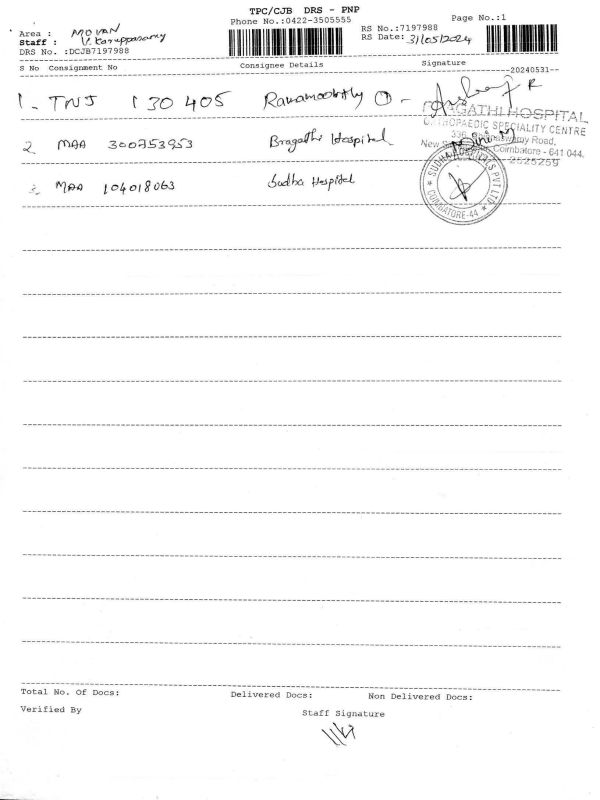 TPC/CJB DRS - PNP
Phone No.:0422-3505555
Page No.:1
Area : MOVAN
Staff : V. Karuppasamy
DRS No. :DCJB7197988
RS No.:7197988
RS Date: 31/05/2024
S No Consignment No Consignee Details Signature
--20240531--
1 - TNJ 130405 Ramamoorthy ① -
2 MAA 300753953 Bragathi Hospital
3 MAA 104018063 Sudha Hospital
HOSPITAL
ORTHOPAEDIC SPECIALITY CENTRE
336, swamy Road,
New Coimbatore - 641 044.
2525259
SUDHA HOSPITALS PVT LTD
COIMBATORE-44
Total No. Of Docs: Delivered Docs: Non Delivered Docs:
Verified By
Staff Signature